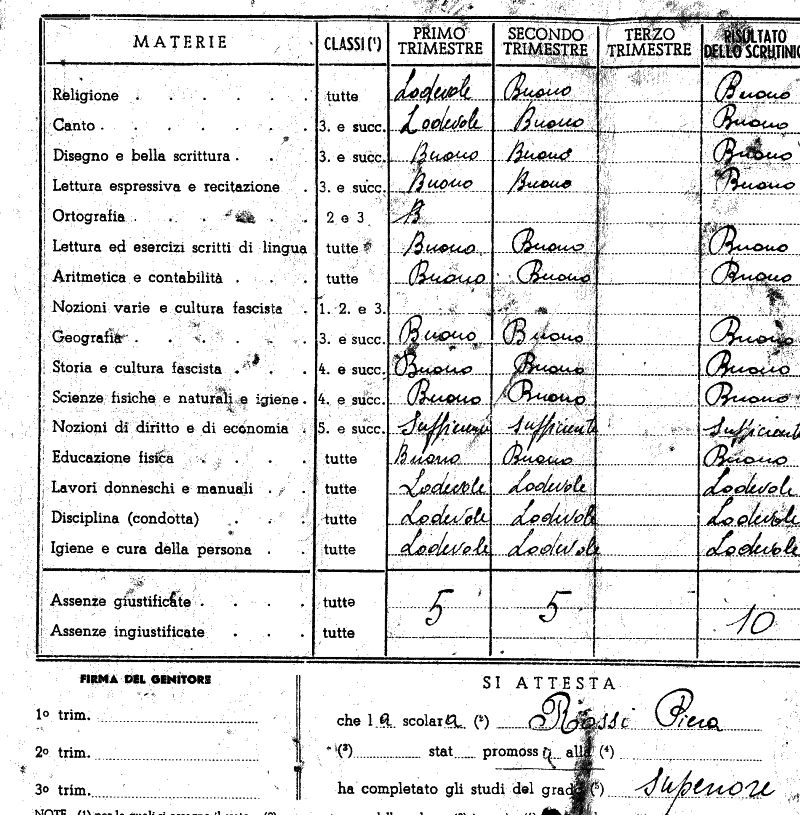 MATERIE CLASSI (¹) PRIMO TRIMESTRE SECONDO TRIMESTRE TERZO TRIMESTRE RISULTATO DELLO SCRUTINIO
Religione tutte Lodevole Buono Buono
Canto 3. e succ. Lodevole Buono Buono
Disegno e bella scrittura 3. e succ. Buono Buono Buono
Lettura espressiva e recitazione 3. e succ. Buono Buono Buono
Ortografia 2 e 3 B
Lettura ed esercizi scritti di lingua tutte Buono Buono Buono
Aritmetica e contabilità tutte Buono Buono Buono
Nozioni varie e cultura fascista 1. 2. e 3.
Geografia 3. e succ. Buono Buono Buono
Storia e cultura fascista 4. e succ. Buono Buono Buono
Scienze fisiche e naturali e igiene 4. e succ. Buono Buono Buono
Nozioni di diritto e di economia 5. e succ. Sufficiente sufficiente sufficiente
Educazione fisica tutte Buono Buono Buono
Lavori donneschi e manuali tutte Lodevole Lodevole Lodevole
Disciplina (condotta) tutte Lodevole Lodevole Lodevole
Igiene e cura della persona tutte Lodevole Lodevole Lodevole
Assenze giustificate tutte 5 5 10
Assenze ingiustificate tutte
FIRMA DEL GENITORE
1º trim.
2º trim.
3º trim.
SI ATTESTA
che la scolara (²) Rossi Piera
(³) stat promossa alla (⁴)
ha completato gli studi del grado (⁵) superiore